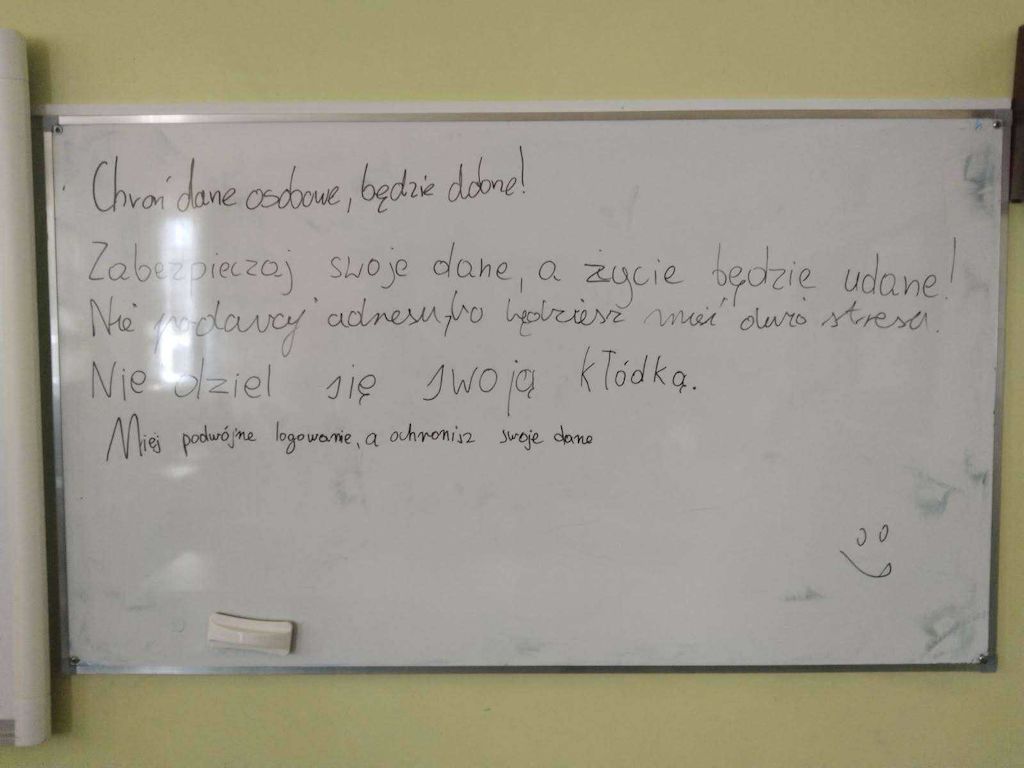 Chroń dane osobowe, będzie dobrze!
Zabezpieczaj swoje dane, a życie będzie udane!
Nie podawaj adresu, bo będziesz mieć dużo stresu.
Nie dziel się swoją kłódką.
Miej podwójne logowanie, a ochronisz swoje dane